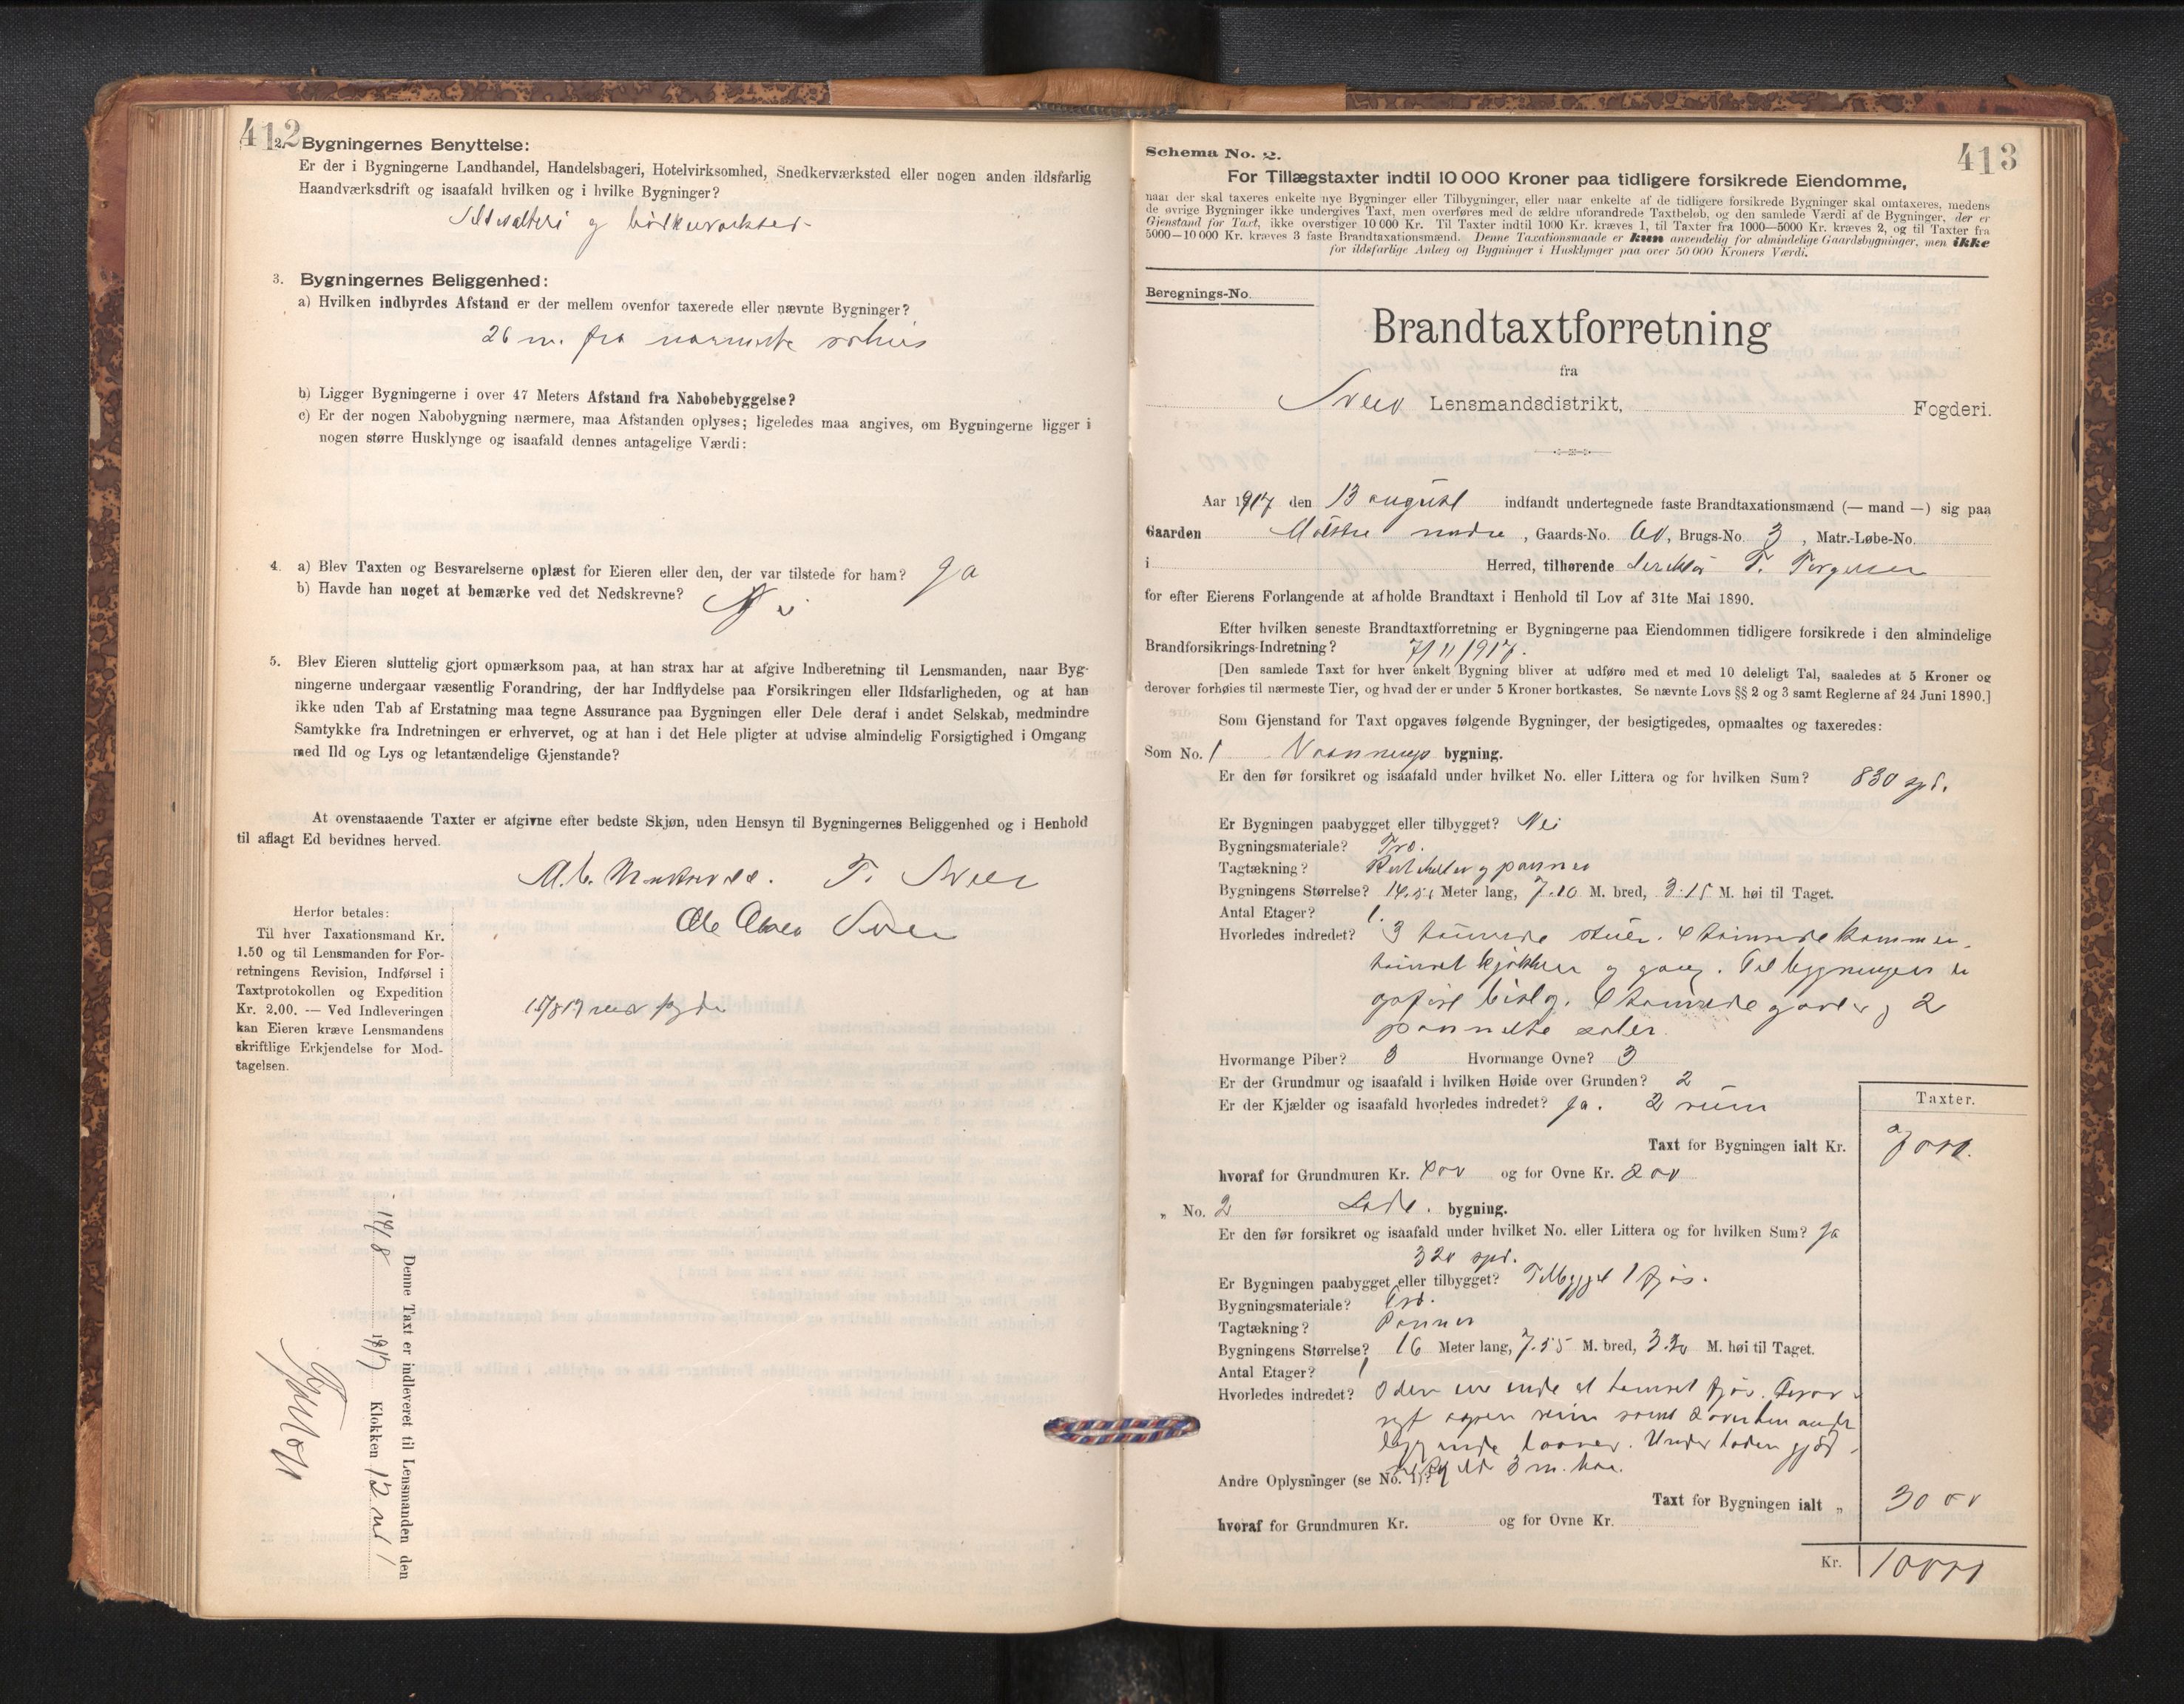 412
2. Bygningernes Benyttelse:
Er der i Bygningerne Landhandel, Handelsbageri, Hotelvirksomhed, Snedkerværksted eller nogen anden ildsfarlig
Haandværksdrift og isaafald hvilken og i hvilke Bygninger?
Sildesalteri og
3. Bygningernes Beliggenhed:
a) Hvilken indbyrdes Afstand er der mellem ovenfor taxerede eller nævnte Bygninger?
26 m. fra nærmeste
b) Ligger Bygningerne i over 47 Meters Afstand fra Nabobebyggelse?
c) Er der nogen Nabobygning nærmere, maa Afstanden oplyses; ligeledes maa angives, om Bygningerne ligger i
nogen større Husklynge og isaafald dennes antagelige Værdi:
4. a) Blev Taxten og Besvarelserne oplæst for Eieren eller den, der var tilstede for ham? Ja
b) Havde han noget at bemærke ved det Nedskrevne? Nei
5. Blev Eieren sluttelig gjort opmærksom paa, at han strax har at afgive Indberetning til Lensmanden, naar Byg-
ningerne undergaar væsentlig Forandring, der har Indflydelse paa Forsikringen eller Ildsfarligheden, og at han
ikke uden Tab af Erstatning maa tegne Assurance paa Bygningen eller Dele deraf i andet Selskab, medmindre
Samtykke fra Indretningen er erhvervet, og at han i det Hele pligter at udvise almindelig Forsigtighed i Omgang
med Ild og Lys og letantændelige Gjenstande?
At ovenstaaende Taxter er afgivne efter bedste Skjøn, uden Hensyn til Bygningernes Beliggenhed og i Henhold
til aflagt Ed bevidnes herved.
T. Sveen
Ole Olsen Sveen
Herfor betales:
Til hver Taxationsmand Kr.
1.50 og til Lensmanden for For-
retningens Revision, Indførsel i
Taxtprotokollen og Expedition
Kr. 2.00. — Ved Indleveringen
kan Eieren kræve Lensmandens
skriftlige Erkjendelse for Mod-
tagelsen.
Denne Taxt er indleveret til Lensmanden den
14/8 1917 Klokken 12
413
Schema No. 2.
For Tillægstaxter indtil 10 000 Kroner paa tidligere forsikrede Eiendomme,
naar der skal taxeres enkelte nye Bygninger eller Tilbygninger, eller naar enkelte af de tidligere forsikrede Bygninger skal omtaxeres, medens
de øvrige Bygninger ikke undergives Taxt, men overføres med de ældre uforandrede Taxtbeløb, og den samlede Værdi af de Bygninger, der er
Gjenstand for Taxt, ikke overstiger 10 000 Kr. Til Taxter indtil 1000 Kr. kræves 1, til Taxter fra 1000—5000 Kr. kræves 2, og til Taxter fra
5000—10 000 Kr. kræves 3 faste Brandtaxationsmænd. Denne Taxationsmaade er kun anvendelig for almindelige Gaardsbygninger, men ikke
for ildsfarlige Anlæg og Bygninger i Husklynger paa over 50 000 Kroners Værdi.
Beregnings-No.
Brandtaxtforretning
fra
Sveio Lensmandsdistrikt, Fogderi.
Aar 1917 den 13 august indfandt undertegnede faste Brandtaxationsmænd (— mand —) sig paa
Gaarden nedre, Gaards-No. Brugs-No. 3, Matr.-Løbe-No.
i Herred, tilhørende T. Torgersen
for efter Eierens Forlangende at afholde Brandtaxt i Henhold til Lov af 31te Mai 1890.
Efter hvilken seneste Brandtaxtforretning er Bygningerne paa Eiendommen tidligere forsikrede i den almindelige
Brandforsikrings-Indretning? 7/11/1917.
[Den samlede Taxt for hver enkelt Bygning bliver at udføre med et med 10 deleligt Tal, saaledes at 5 Kroner og
derover forhøies til nærmeste Tier, og hvad der er under 5 Kroner bortkastes. Se nævnte Lovs §§ 2 og 3 samt Reglerne af 24 Juni 1890.]
Som Gjenstand for Taxt opgaves følgende Bygninger, der besigtigedes, opmaaltes og taxeredes:
Som No. 1 Vaanings bygning.
Er den før forsikret og isaafald under hvilket No. eller Littera og for hvilken Sum? 830 spd.
Er Bygningen paabygget eller tilbygget? Nei
Bygningsmateriale? Træ.
Tagtækning? og panner
Bygningens Størrelse? 14.51 Meter lang, 7.10 M. bred, 3.15 M. høi til Taget.
Antal Etager? 1.
Hvorledes indredet? 3 tømrede stuer. 4 tømrede kammer.
tømret kjøkken og gang. Til bygningen er
4 tømrede og 2
pannelte saler.
Hvormange Piber? 3 Hvormange Ovne? 3
Er der Grundmur og isaafald i hvilken Høide over Grunden? 2
Er der Kjælder og isaafald hvorledes indredet? Ja. 2 rum
Taxter.
Taxt for Bygningen ialt Kr. 7000.
hvoraf for Grundmuren Kr. 400 og for Ovne Kr. 200
„ No. 2 Lade. bygning.
Er den før forsikret og isaafald under hvilket No. eller Littera og for hvilken Sum? Ja
320 spd.
Er Bygningen paabygget eller tilbygget? Tilbygget 1 fjøs.
Bygningsmateriale? Træ.
Tagtækning? Panner
Bygningens Størrelse? 16 Meter lang, 7.55 M. bred, 3.30 M. høi til Taget.
Antal Etager? 1
Hvorledes indredet? I den ene ende et tømret fjøs.
Under laden gjød-
3 m.
Andre Oplysninger (se No. 1)?
Taxt for Bygningen ialt „ 3000
hvoraf for Grundmuren Kr. og for Ovne Kr.
Kr. 10000